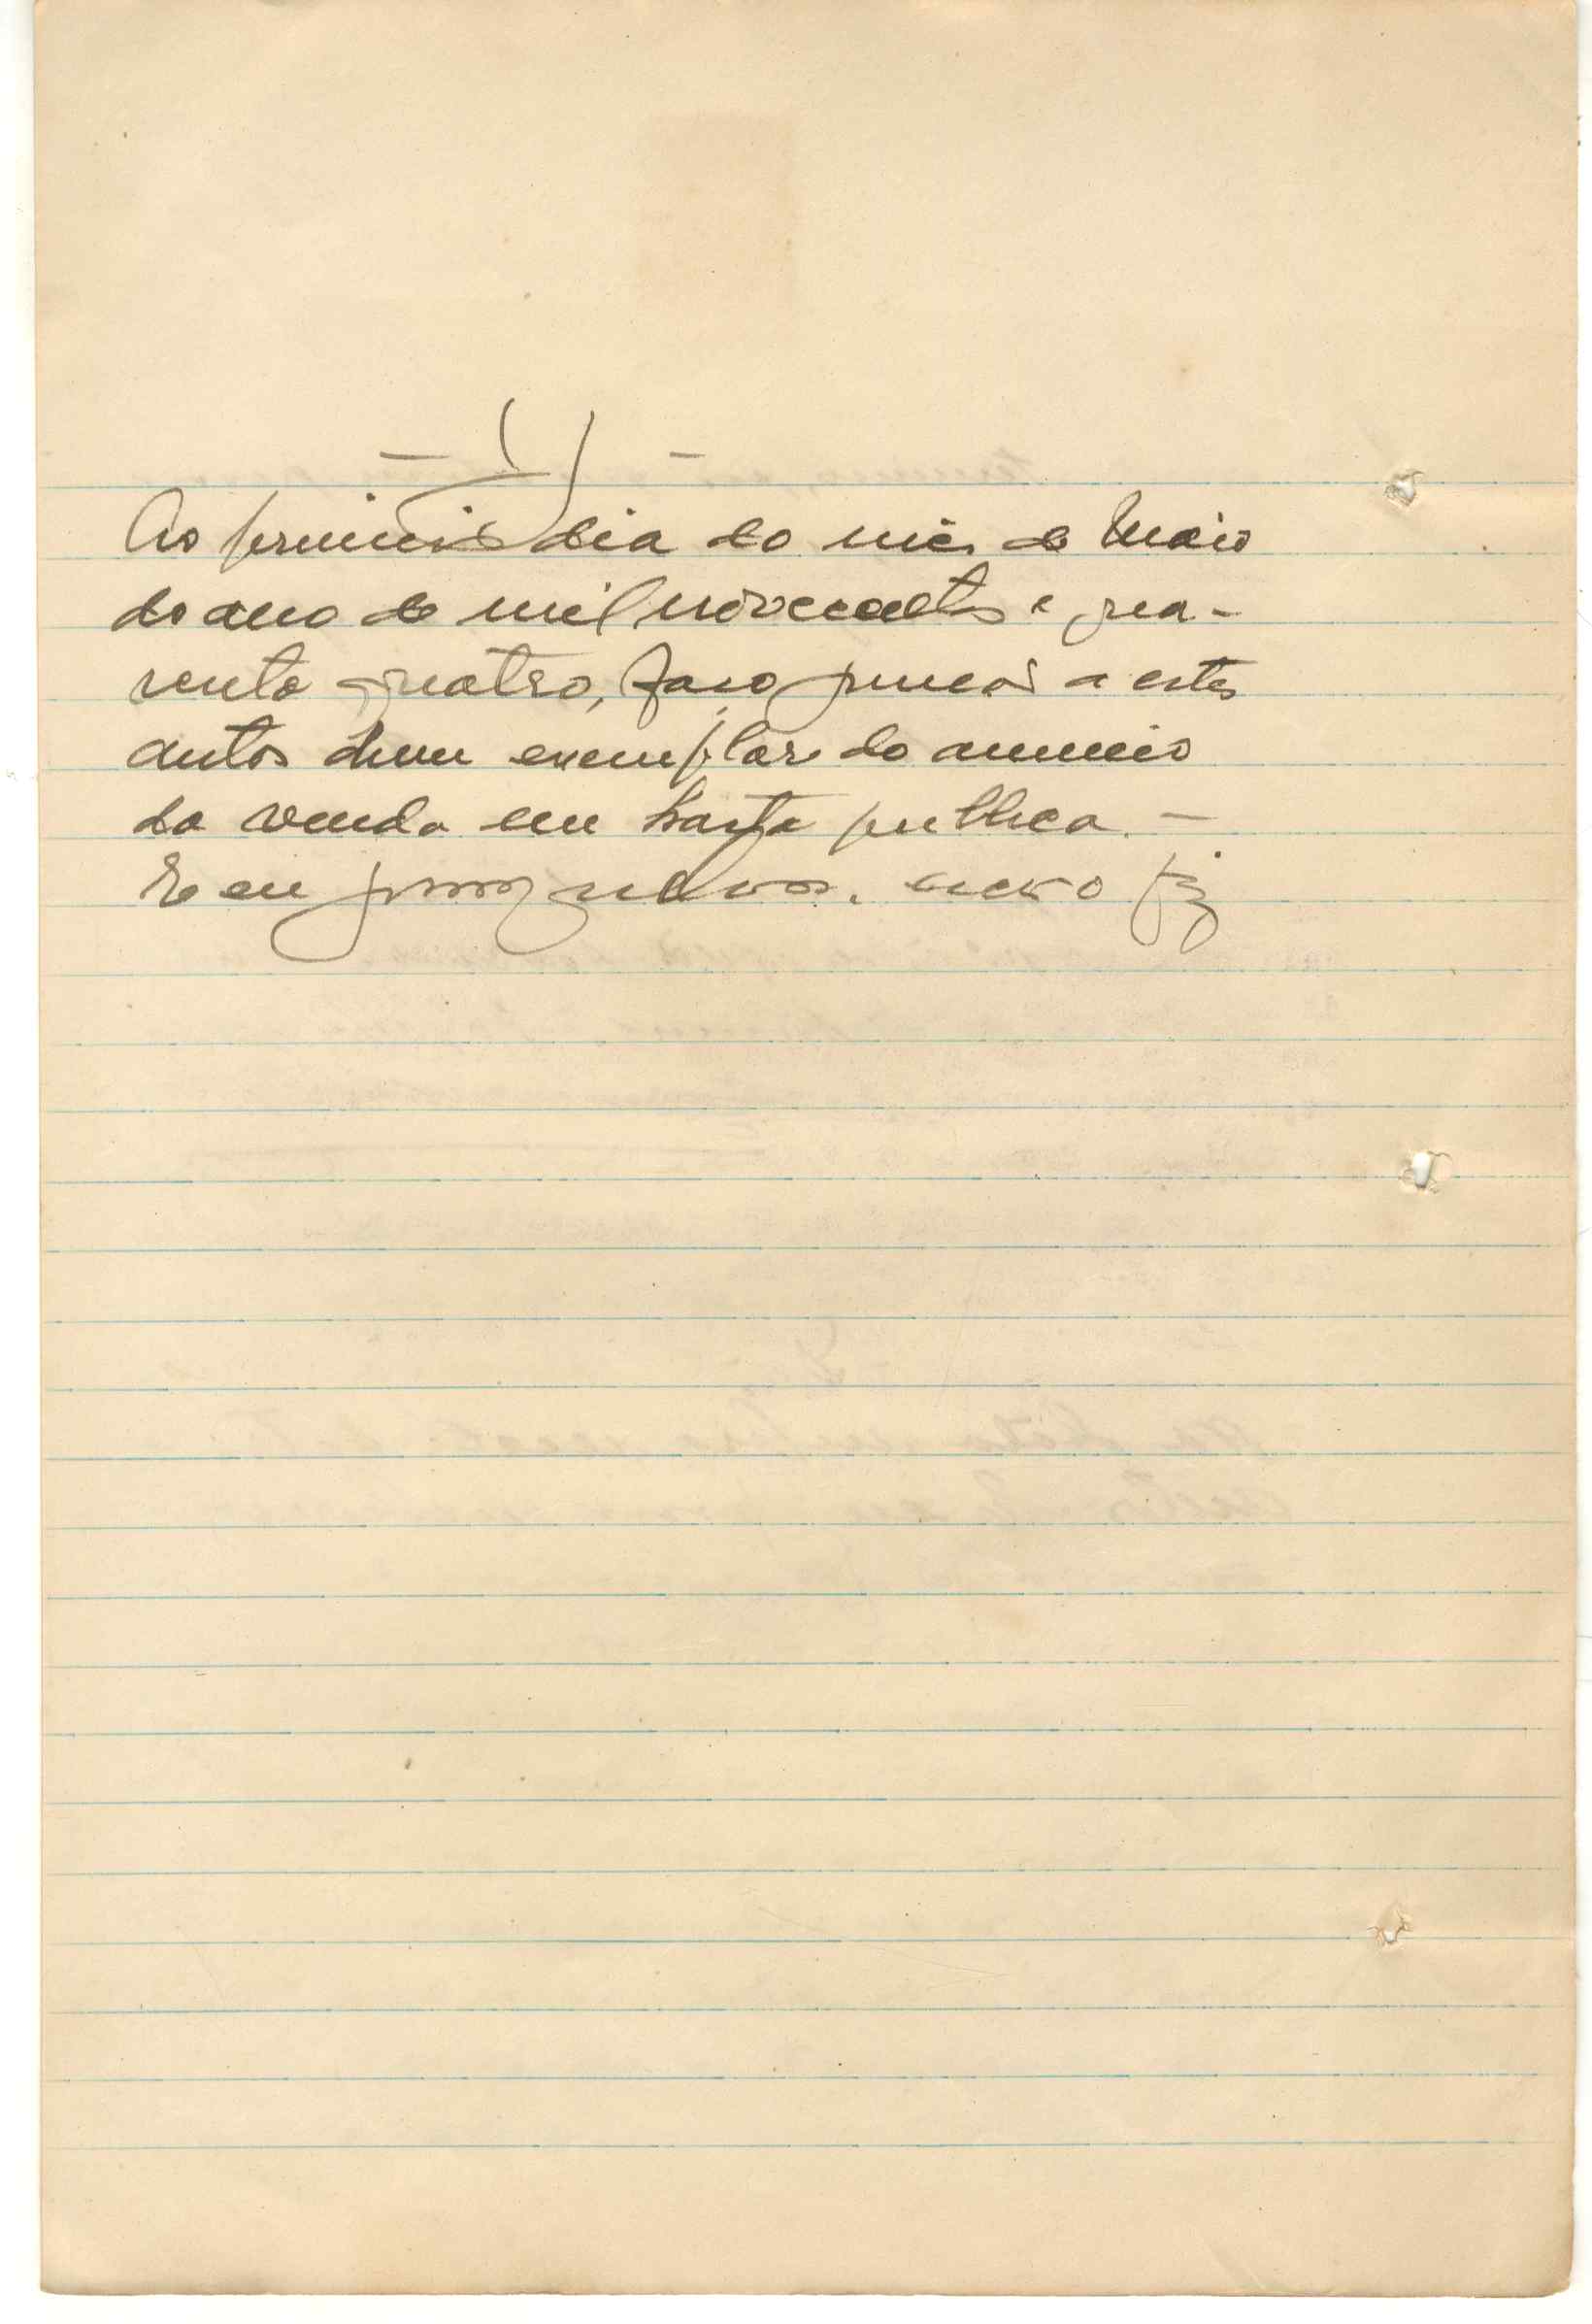 Ao primeiro dia do mês de Maio
do ano de mil novecentos e qua-
renta quatro, faço juncão a estes
autos dum exemplar do anuncio
da venda em hasta publica. —
E eu fiz